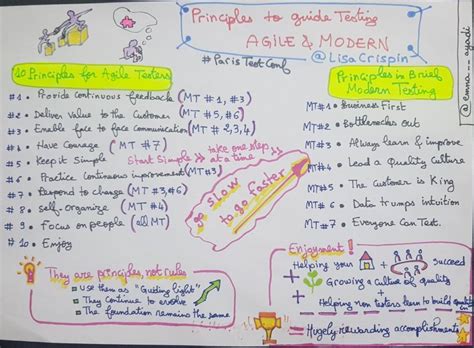 Principles to guide Testing
AGILE & MODERN
@LisaCrispin
# Paris Test Conf
@emna__ayadi
10 Principles for Agile Testers
#1 • Provide continuous feedback (MT #1, #3)
#2 • Deliver Value to the Customer (MT #5, #6)
#3 • Enable face to face communication (MT # 2,3,4)
#4 • Have Courage (MT #7)
#5 • Keep it Simple Start Simple >> take one step at a time >>
#6 • Practice Continuous improvement (MT #3)
#7 • Respond to change (MT #3, #6)
#8 • Self-Organize (MT # 4)
#9 • Focus on people (all MT)
#10 • Enjoy
go slow
to go faster
Principles in Brief
Modern Testing
MT#1 • Business First
MT#2 • Bottlenecks out
MT #3 • Always learn & improve
MT #4 • Lead a Quality Culture
MT#5 • The Customer is King
MT#6 • Data trumps intuition
MT #7 • Everyone Can Test.
They are principles, not rules
• Use them as "Guiding light"
• They Continue to evolve
• The foundation remains the same
Enjoyment!
Helping your + succeed
+ Growing a culture of quality
+ Helping non testers learn to build quality in
= Hugely rewarding accomplishments